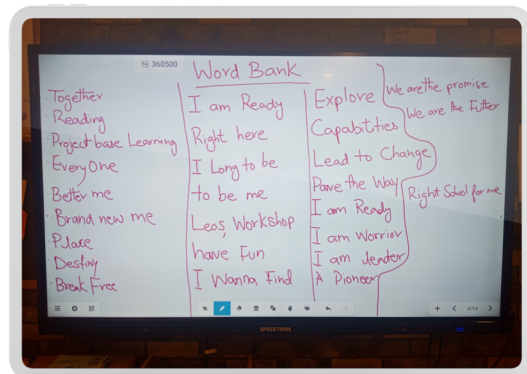 360500
Word Bank
Together
Reading
Project base Learning
EveryOne
Better me
Brand new me
Place
Destiny
Break Free
I am Ready
Right here
I Long to be
to be me
Leos, Workshop
have Fun
I Wanna Find
Explore
Capabitties
Lead to Change
Pave the Way
I am Ready
I am Worrior
I am leader
A Pioneer
We are the promise
We are the Futher
Right School for me
SPECKTRON